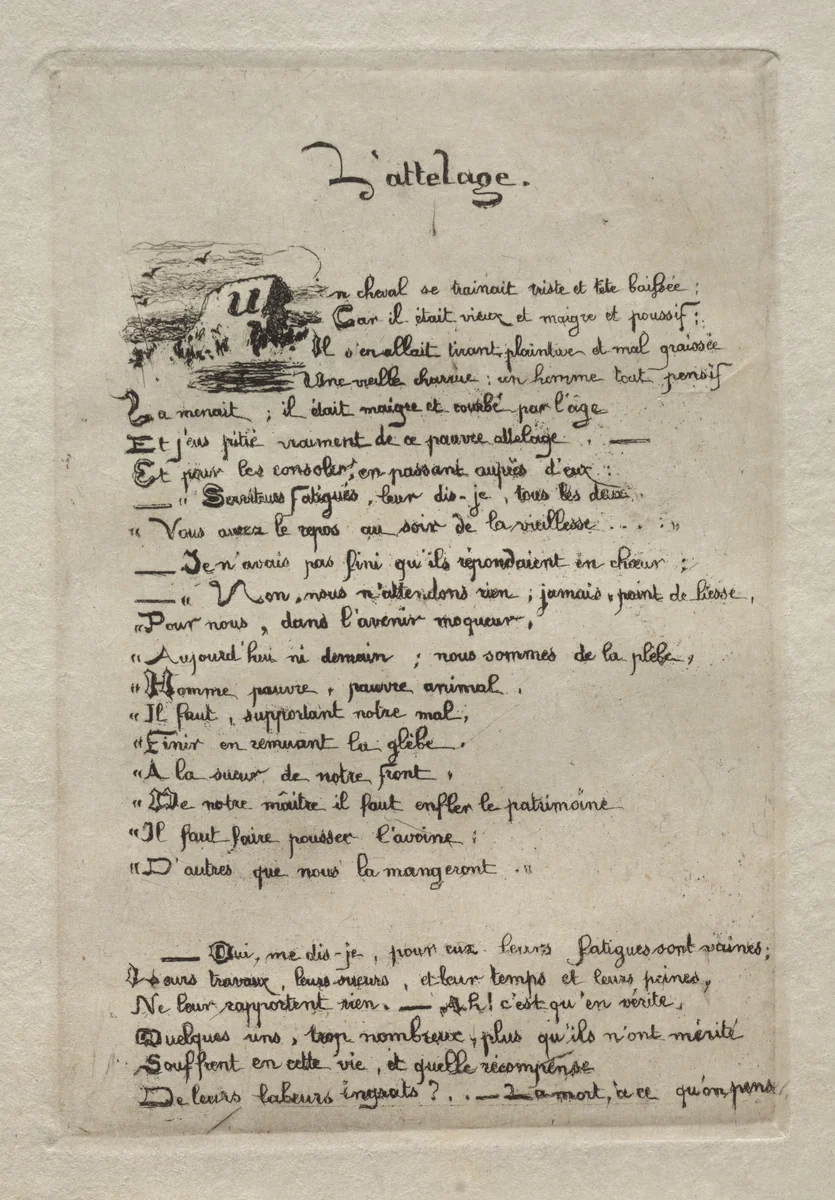 L'attelage.
Un cheval se trainait triste et tête baissée ;
Car il était vieux et maigre et poussif ;
Il s'en allait tirant, plaintive et mal graissée
Une vieille charrue : un homme tout pensif
La menait ; il était maigre et courbé par l'âge
Et j'eus pitié vraiment de ce pauvre attelage . —
Et pour les consoler, en passant auprès d'eux :
— " Serviteurs fatigués, leur dis-je, tous les deux,
" Vous aurez le repos au soir de la vieillesse . . . . "
— Je n'avais pas fini qu'ils répondaient en chœur ;
— " Non, nous n'attendons rien ; jamais, point de liesse,
" Pour nous, dans l'avenir moqueur,
" Aujourd'hui ni demain ; nous sommes de la plèbe,
" Homme pauvre, pauvre animal,
" Il faut, supportant notre mal,
" Finir en remuant la glèbe .
" A la sueur de notre front,
" De notre maître il faut enfler le patrimoine
" Il faut faire pousser l'avoine ;
" D'autres que nous la mangeront . "
— Oui, me dis-je, pour eux leurs fatigues sont vaines ;
Leurs travaux, leurs sueurs, et leur temps et leurs peines,
Ne leur rapportent rien. — Ah ! c'est qu'en vérité,
Quelques uns, trop nombreux, plus qu'ils n'ont mérité
Souffrent en cette vie, et quelle récompense
De leurs labeurs ingrats ? . . — La mort, à ce qu'on pense